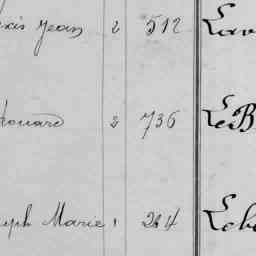 Jean 2 512 Lav
douard 2 736 LeB
seph Marie 1 264 Leb